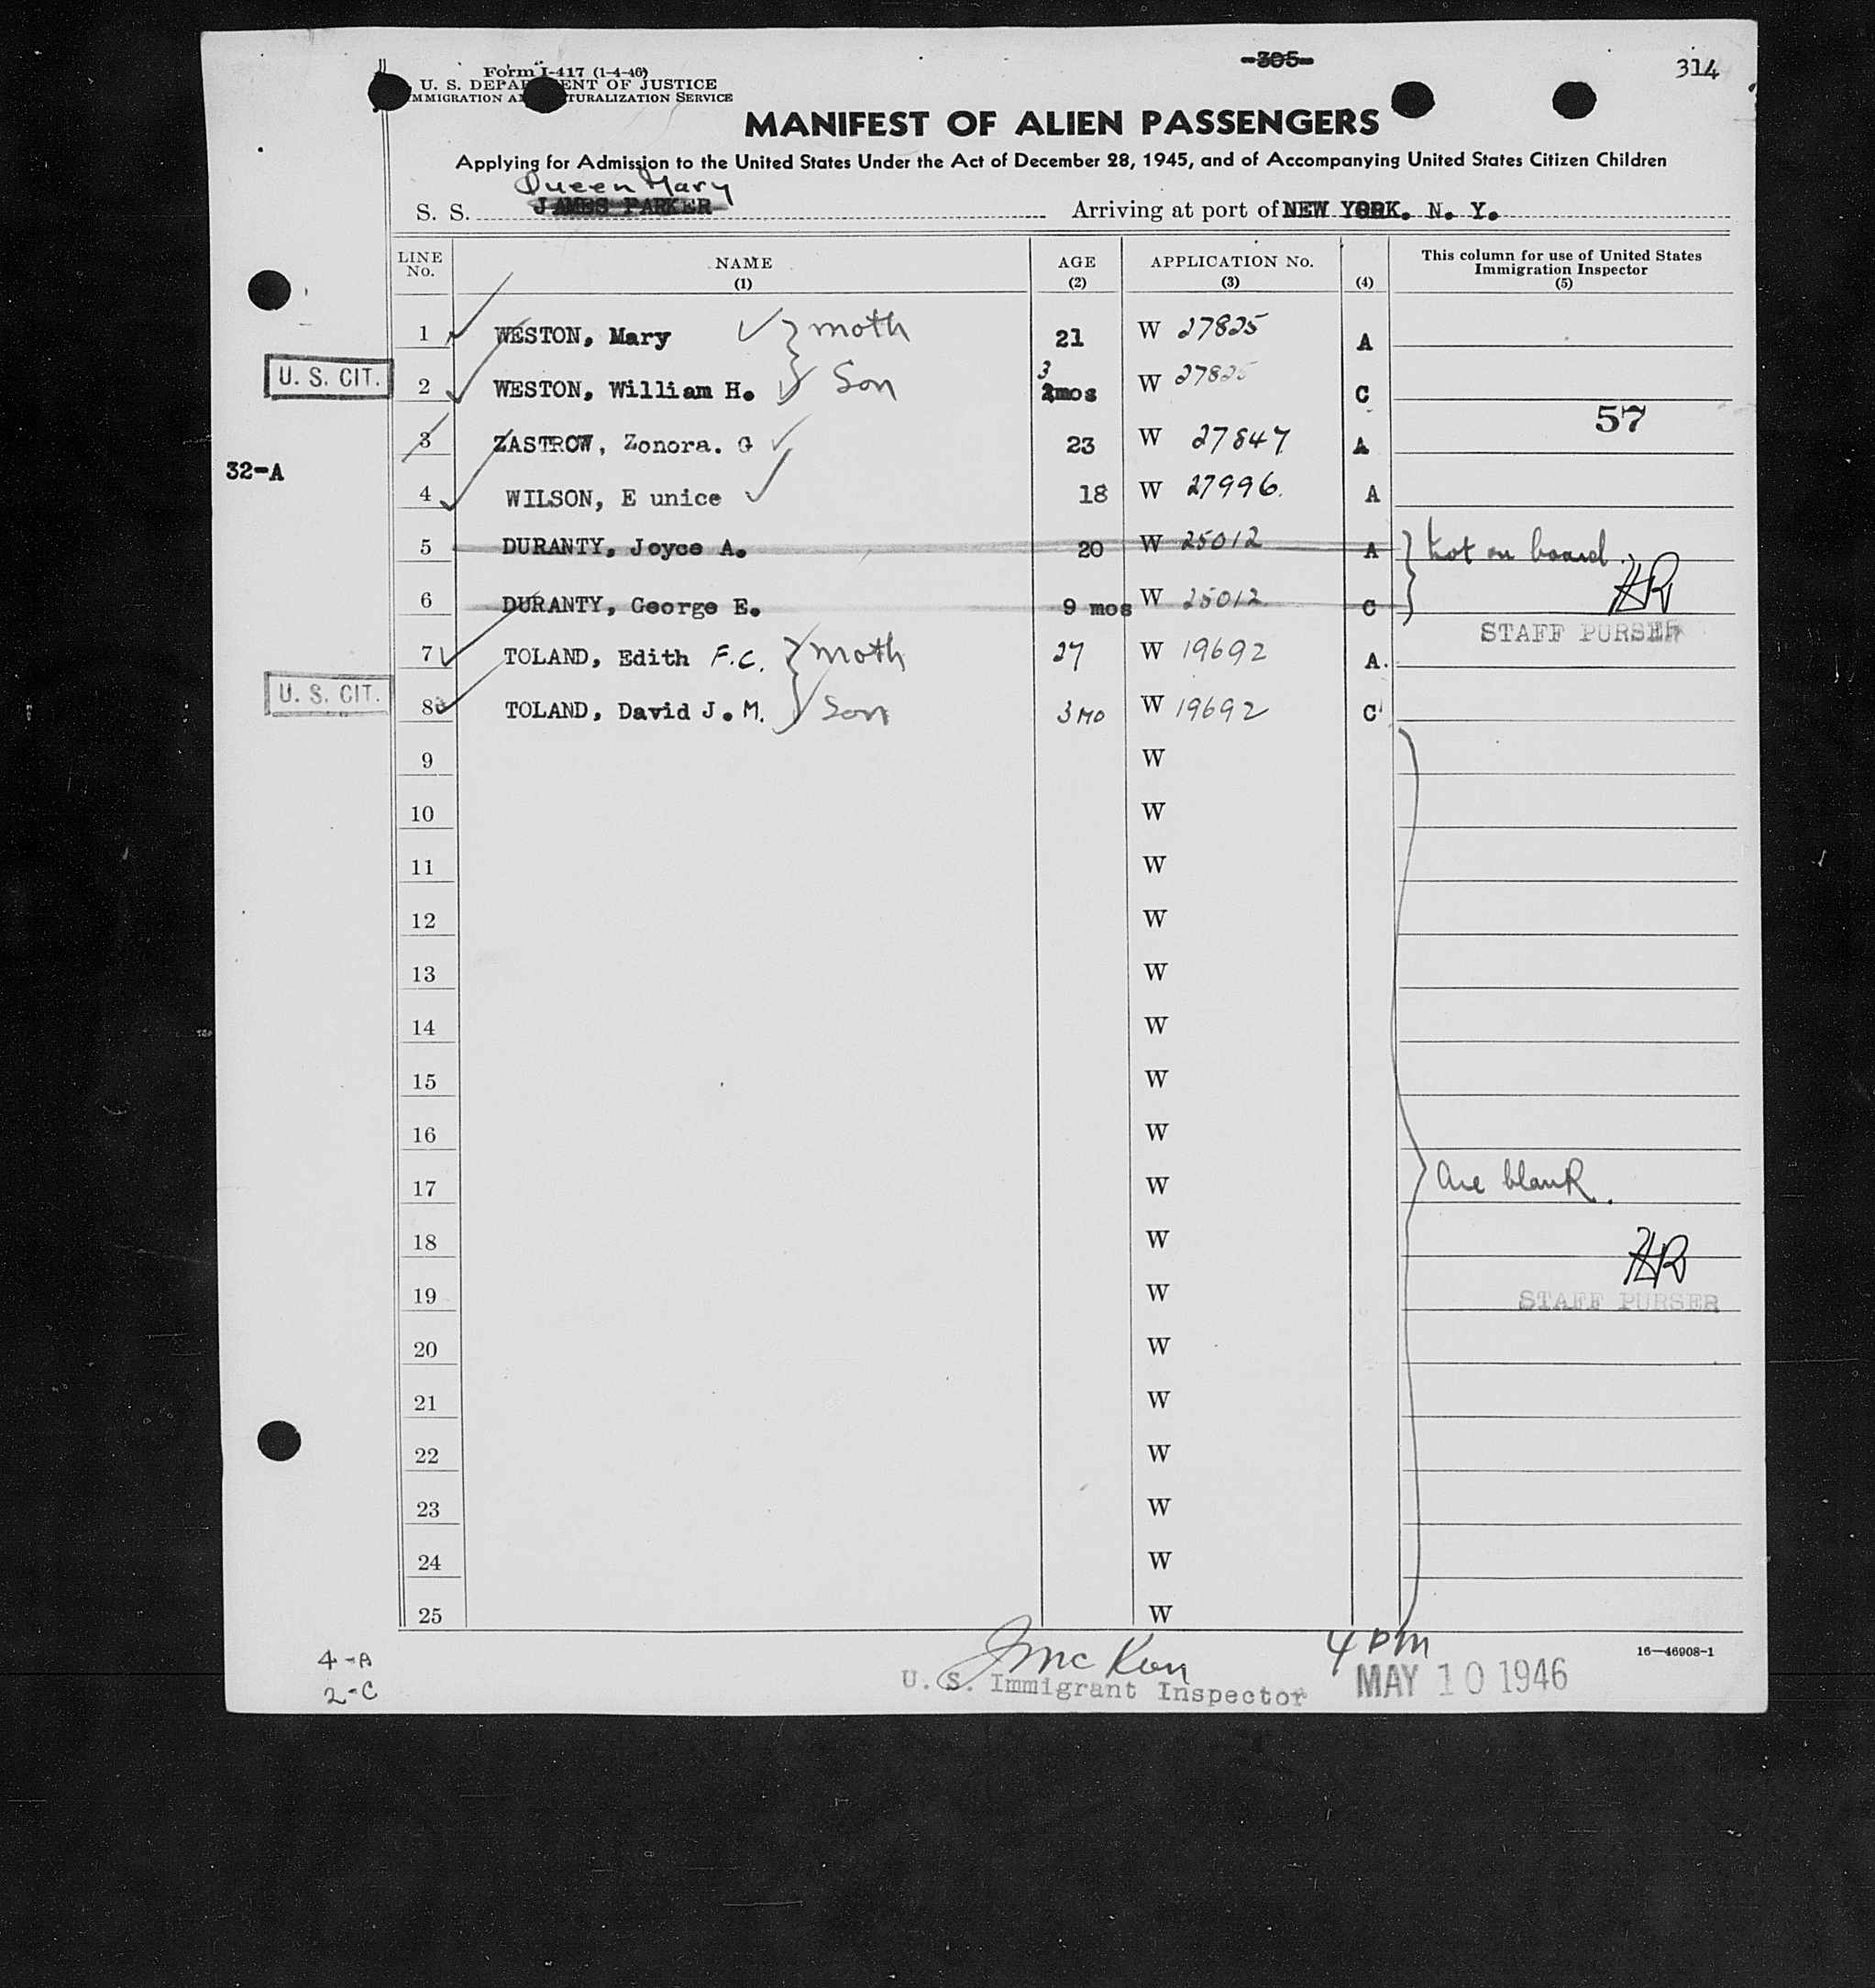 -305-
314
Form I-417 (1-4-46)
U. S. DEPARTMENT OF JUSTICE
IMMIGRATION AND NATURALIZATION SERVICE
MANIFEST OF ALIEN PASSENGERS
Applying for Admission to the United States Under the Act of December 28, 1945, and of Accompanying United States Citizen Children
Queen Mary
S. S. JAMES PARKER Arriving at port of NEW YORK. N. Y.
LINE No. NAME (1) AGE (2) APPLICATION No. (3) (4) This column for use of United States Immigration Inspector (5)
1 WESTON, Mary moth 21 W 27825 A
U. S. CIT. 2 WESTON, William H. Son 3 2mos W 27825 C
57
3 ZASTROW, Zonora. G 23 W 27847 A
32-A
4 WILSON, E unice 18 W 27996. A
5 DURANTY, Joyce A. 20 W 25012 A not on board.
6 DURANTY, George E. 9 mos W 25012 C HR
STAFF PURSER
7 TOLAND, Edith F.C. moth 27 W 19692 A.
U. S. CIT. 8 TOLAND, David J. M. Son 3 MO W 19692 C
9 W
10 W
11 W
12 W
13 W
14 W
15 W
16 W
17 W Are blank.
18 W HR
19 W STAFF PURSER
20 W
21 W
22 W
23 W
24 W
25 W
4-A
2-C
U. S. Immigrant Inspector
4 PM
MAY 10 1946
16—46908-1